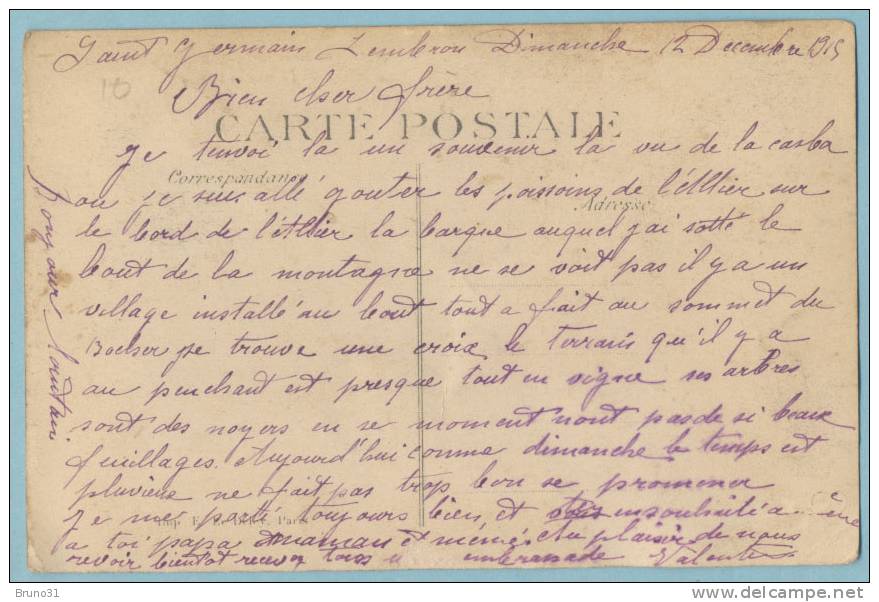 Saint Germain Lembron Dimanche 12 Decembre 1915
10
Bien cher frère
CARTE POSTALE
je tenvoi la un souvenir la vu de la casba
Correspondance
ou je suis allé gouter les poissoins de l'Allier sur
Adresse
le bord de l'Allier la barque auquel j'ai sotté le
bout de la montagne ne se voit pas il y a un
village installé au bout tout a fait au sommet du
Rocher se trouve une croix le terrain qu'il y a
au penchant est presque tout en vigne ses arbres
sont des noyers en se moment nont pas de si beaux
feuillages. Aujourd'hui comme dimanche le temps est
pluvieux ne fait pas trop bon se promener
je me porte toujours bien et en souhaite a
Imp. Paris
a toi papa maman et mémé. Au plaisir de nous
revoir bientot recever tous embrassade Valentin
Bonjour
Bruno31
www.delcampe.net